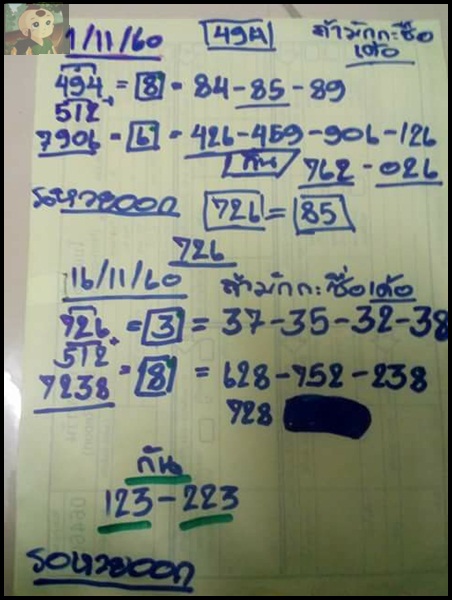 1/11/60 494 ถ้ามักกะซื้อ
เด้อ
494 = 8 - 84-85-89
512
7906 - 6 - 426-459-906-126
กัน 762 - 026
รอหวยออก 726 = 85
726
16/11/60 ถ้ามักกะซื้อเด้อ
726 = 3 = 37-35-32-38
512 +
7238 = 8 = 628-752-238
728
กัน
123-223
รอหวยออก